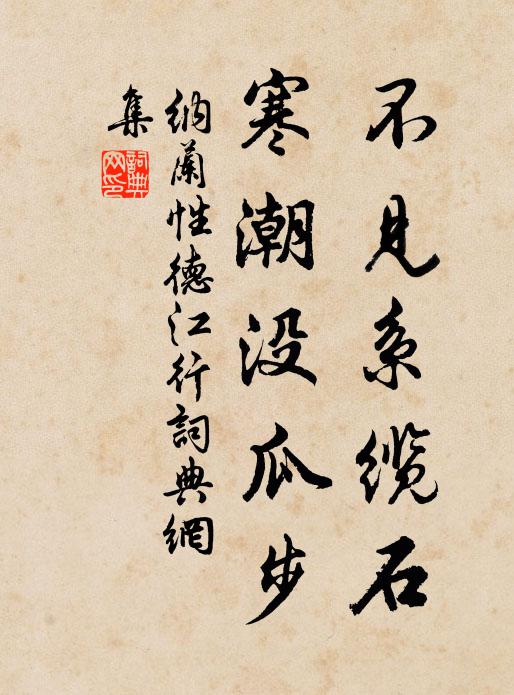 不见系缆石
寒潮没瓜步
纳兰性德江行詞典網
集
詞典
网印